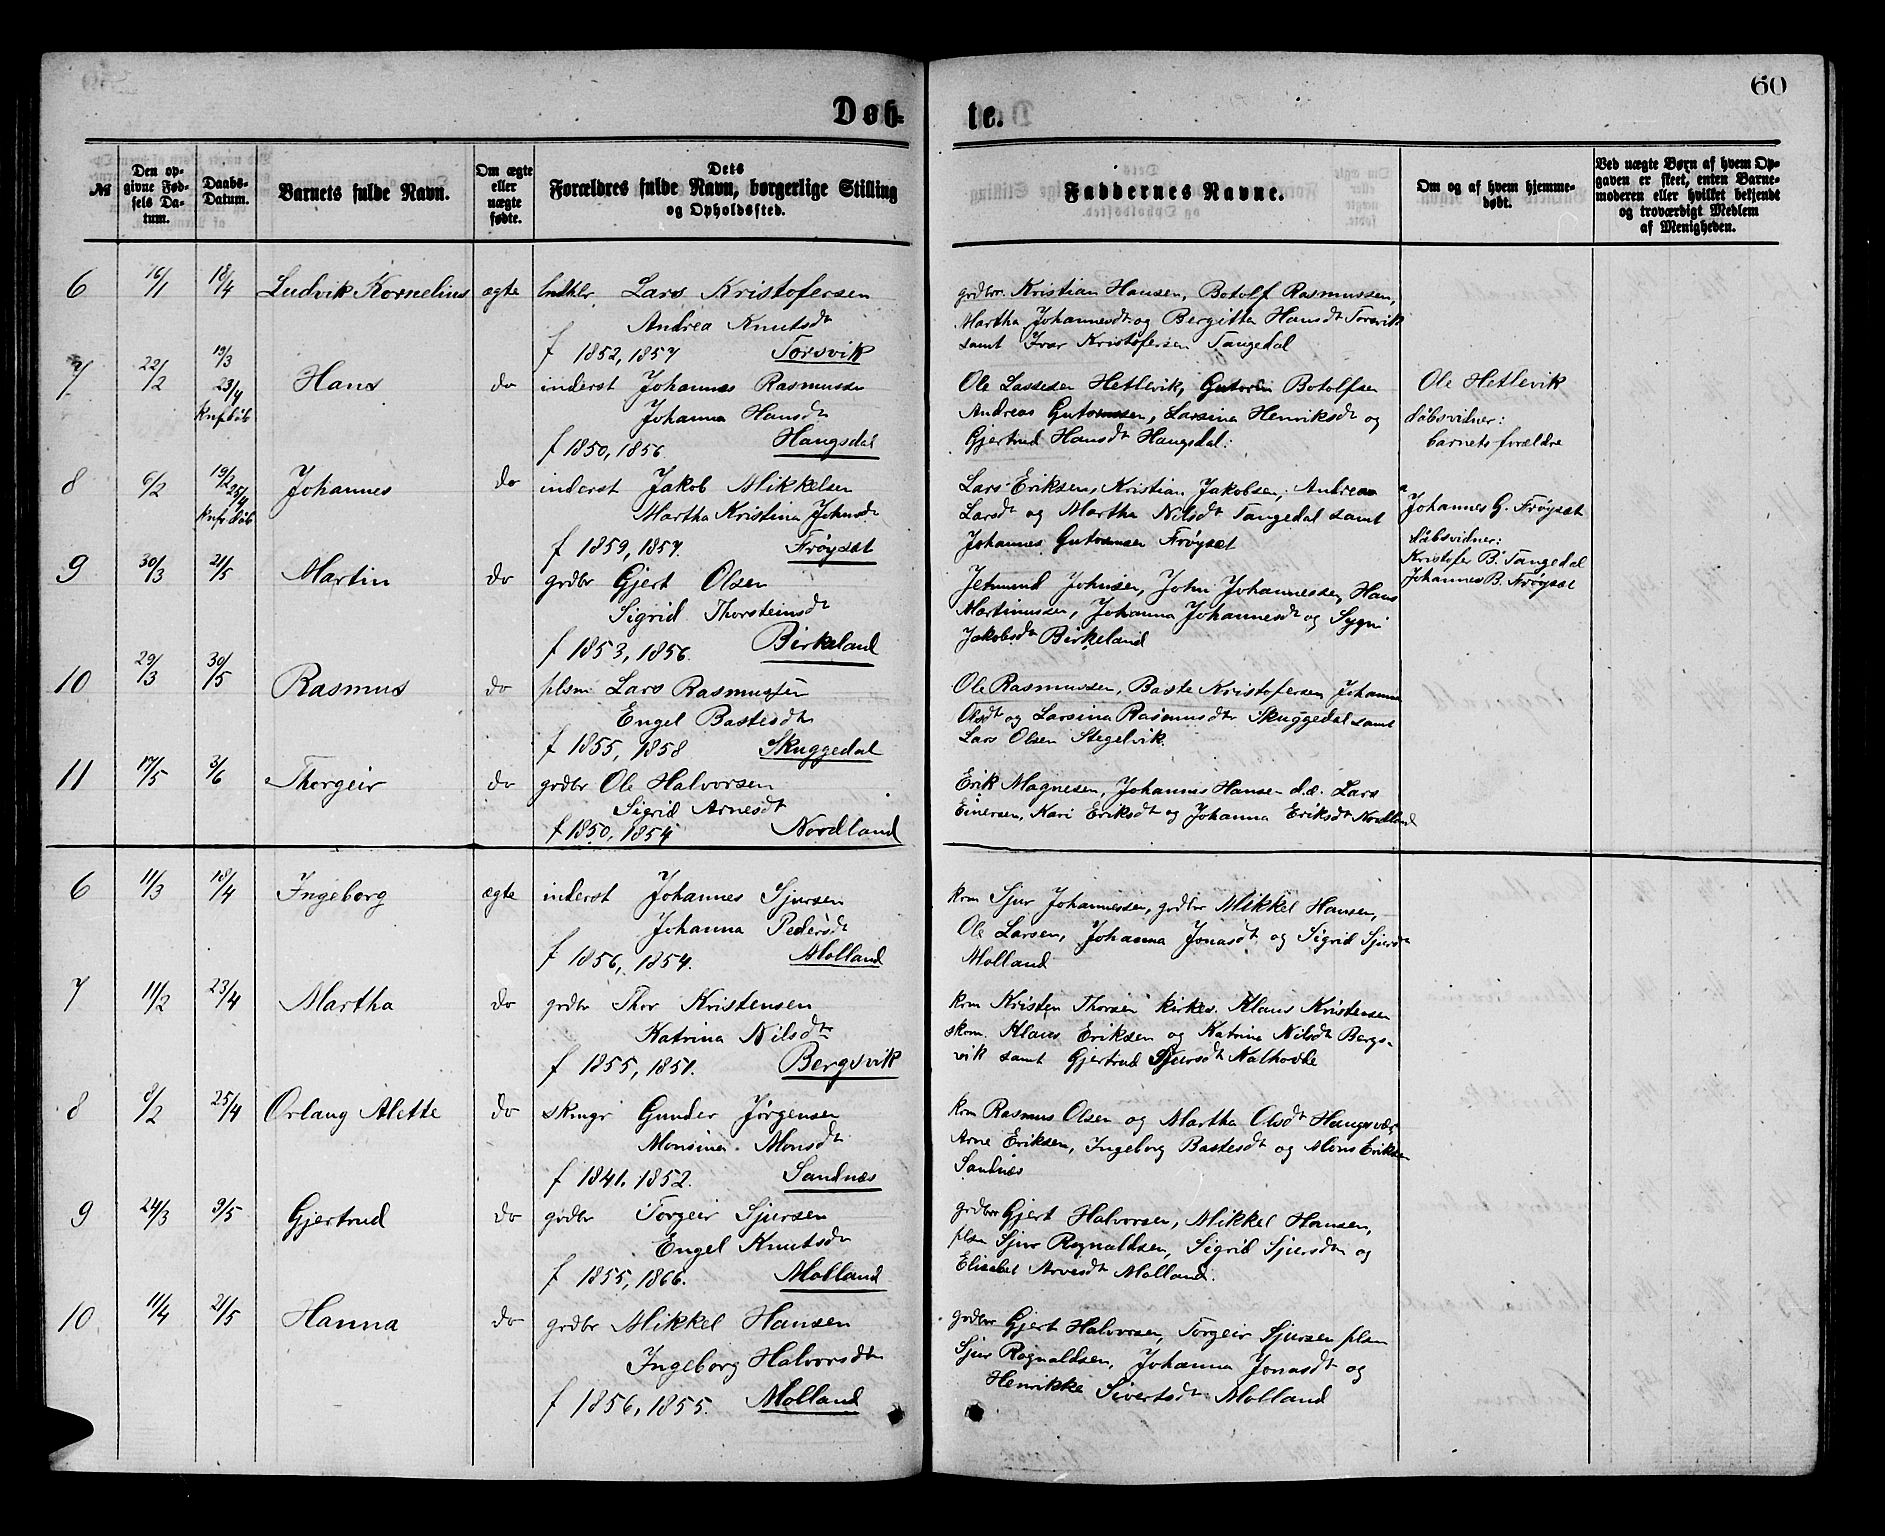 60
Døb-
te.
№
Den op-
givne Fød-
sels Da-
tum.
Daabs-
Datum.
Barnets fulde Navn.
Om ægte
eller
uægte
fødte.
Dets
Forældres fulde Navn, borgerlige Stilling
og Opholdssted.
Faddernes Navne.
Om og af hvem hjemme-
døbt.
Ved uægte Børn af hvem Op-
gaven er skeet, enten Barne-
moderen eller hvilket bekjendt
og troværdigt Medlem
af Menigheden.
6 16/1 18/4 Ludvik Kornelius ægte Lars Kristofersen
Andrea Knutsdt
f 1852, 1857 Torsvik
grdbr. Kristian Hansen, Botolf Rasmussen,
Martha Johannesdt og Bergitta Hansdt Torsvik
samt Ivar Kristofersen Tangedal
7 22/2 19/3 23/4 Hans do inderst Johannes Rasmussen
Johanna Hansdt
f 1850, 1856 Haugsdal
Ole Lassesen Hetlevik, Gutorm Botolfsen
Andreas Gutormsen, Larsina Henriksdt og
Gjertrud Hansdt Haugsdal.
Ole Hetlevik
Dåbsvidner:
barnets forældre
8 6/2 19/2 25/4 Johannes do inderst Jakob Mikkelsen
Martha Kristina Johnsdt
f 1859, 1857. Frøyset
Lars Eriksen, Kristian Jakobsen, Andrea
Larsdt og Martha Nilsdt Tangedal samt
Johannes Gutormsen Frøyset
Johannes G. Frøyset
dåbsvidner:
Kristofer B. Tangedal
Johannes B. Frøyset
9 30/3 21/5 Martin do grdbr Gjert Olsen
Sigrid Thorsteinsdt
f 1853, 1856. Birkeland
Jetmund Johnsen, John Johannessen, Hans
Martinussen, Johanna Johannesdt og Sygni
Jakobsdt Birkeland
10 29/3 30/5 Rasmus do plsm Lars Rasmussen
Engel Bastesdt
f 1855, 1858 Skuggedal
Ole Rasmussen, Baste Kristofersen, Johanna
Olsdt og Larsina Rasmusdt Skuggedal samt
Lars Olsen Stegelvik.
11 17/5 3/6 Thorgeir do grdbr Ole Halvorsen
Sigrid Arnesdt
f 1850, 1854 Nordland
Erik Magnesen, Johannes Hansen d.æ. Lars
Einersen, Kari Eriksdt og Johanna Eriksdt Nordland
6 11/3 18/4 Ingeborg ægte inderst Johannes Sjursen
Johanna Pedersdt
f 1856, 1854. Molland
kom Sjur Johannessen, grdbr Mikkel Hansen,
Ole Larsen, Johanna Jonasdt og Sigrid Sjursdt
Molland
7 11/2 23/4 Martha do grdbr Thor Kristensen
Katrina Nilsdt
f 1855, 1851. Bergsvik
kom Kristen Thorsen kirkes. Klaus Kristensen
skom. Klaus Eriksen og Katrina Nilsdt Bergs-
vik samt Gjertrud Sjursdt Nathovde
8 8/2 25/4 Orlaug Alette do Gunder Jørgensen
Monsina Monsdt
f 1841. 1852. Sandnæs
kom Rasmus Olsen og Martha Olsdt Haugsvær
Arne Eriksen, Ingeborg Bastesdt og Mons Eriksen
Sandnæs
9 24/3 9/5 Gjertrud do grdbr Torgeir Sjursen
Engel Knutsdt
f 1855, 1866. Molland
grdbrr Gjert Halvorsen, Mikkel Hansen,
plsm Sjur Rognaldsen, Sigrid Sjursdtr og
Elisabet Arvesdt Molland.
10 11/4 21/5 Hanna do grdbr Mikkel Hansen
Ingeborg Halvorsdt
f 1856, 1855. Molland
grdbrr Gjert Halvorsen, Torgeir Sjursen plsm
Sjur Rognaldsen, Johanna Jonasdt og
Henrikke Sivertsdt Molland